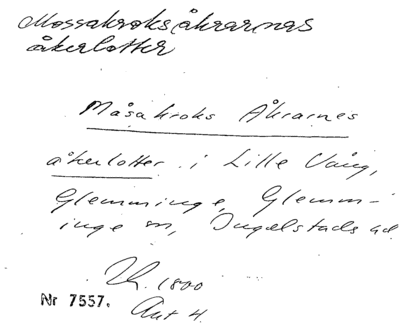 Mossakroksåkrarnas
åkerlotter
Måsakroks Åkrarnes
åkerlotter i Lille Vång,
Glemminge, Glemm-
inge sn, Ingelstads hd
Lh. 1800
Nr 7557.
Akt 4.